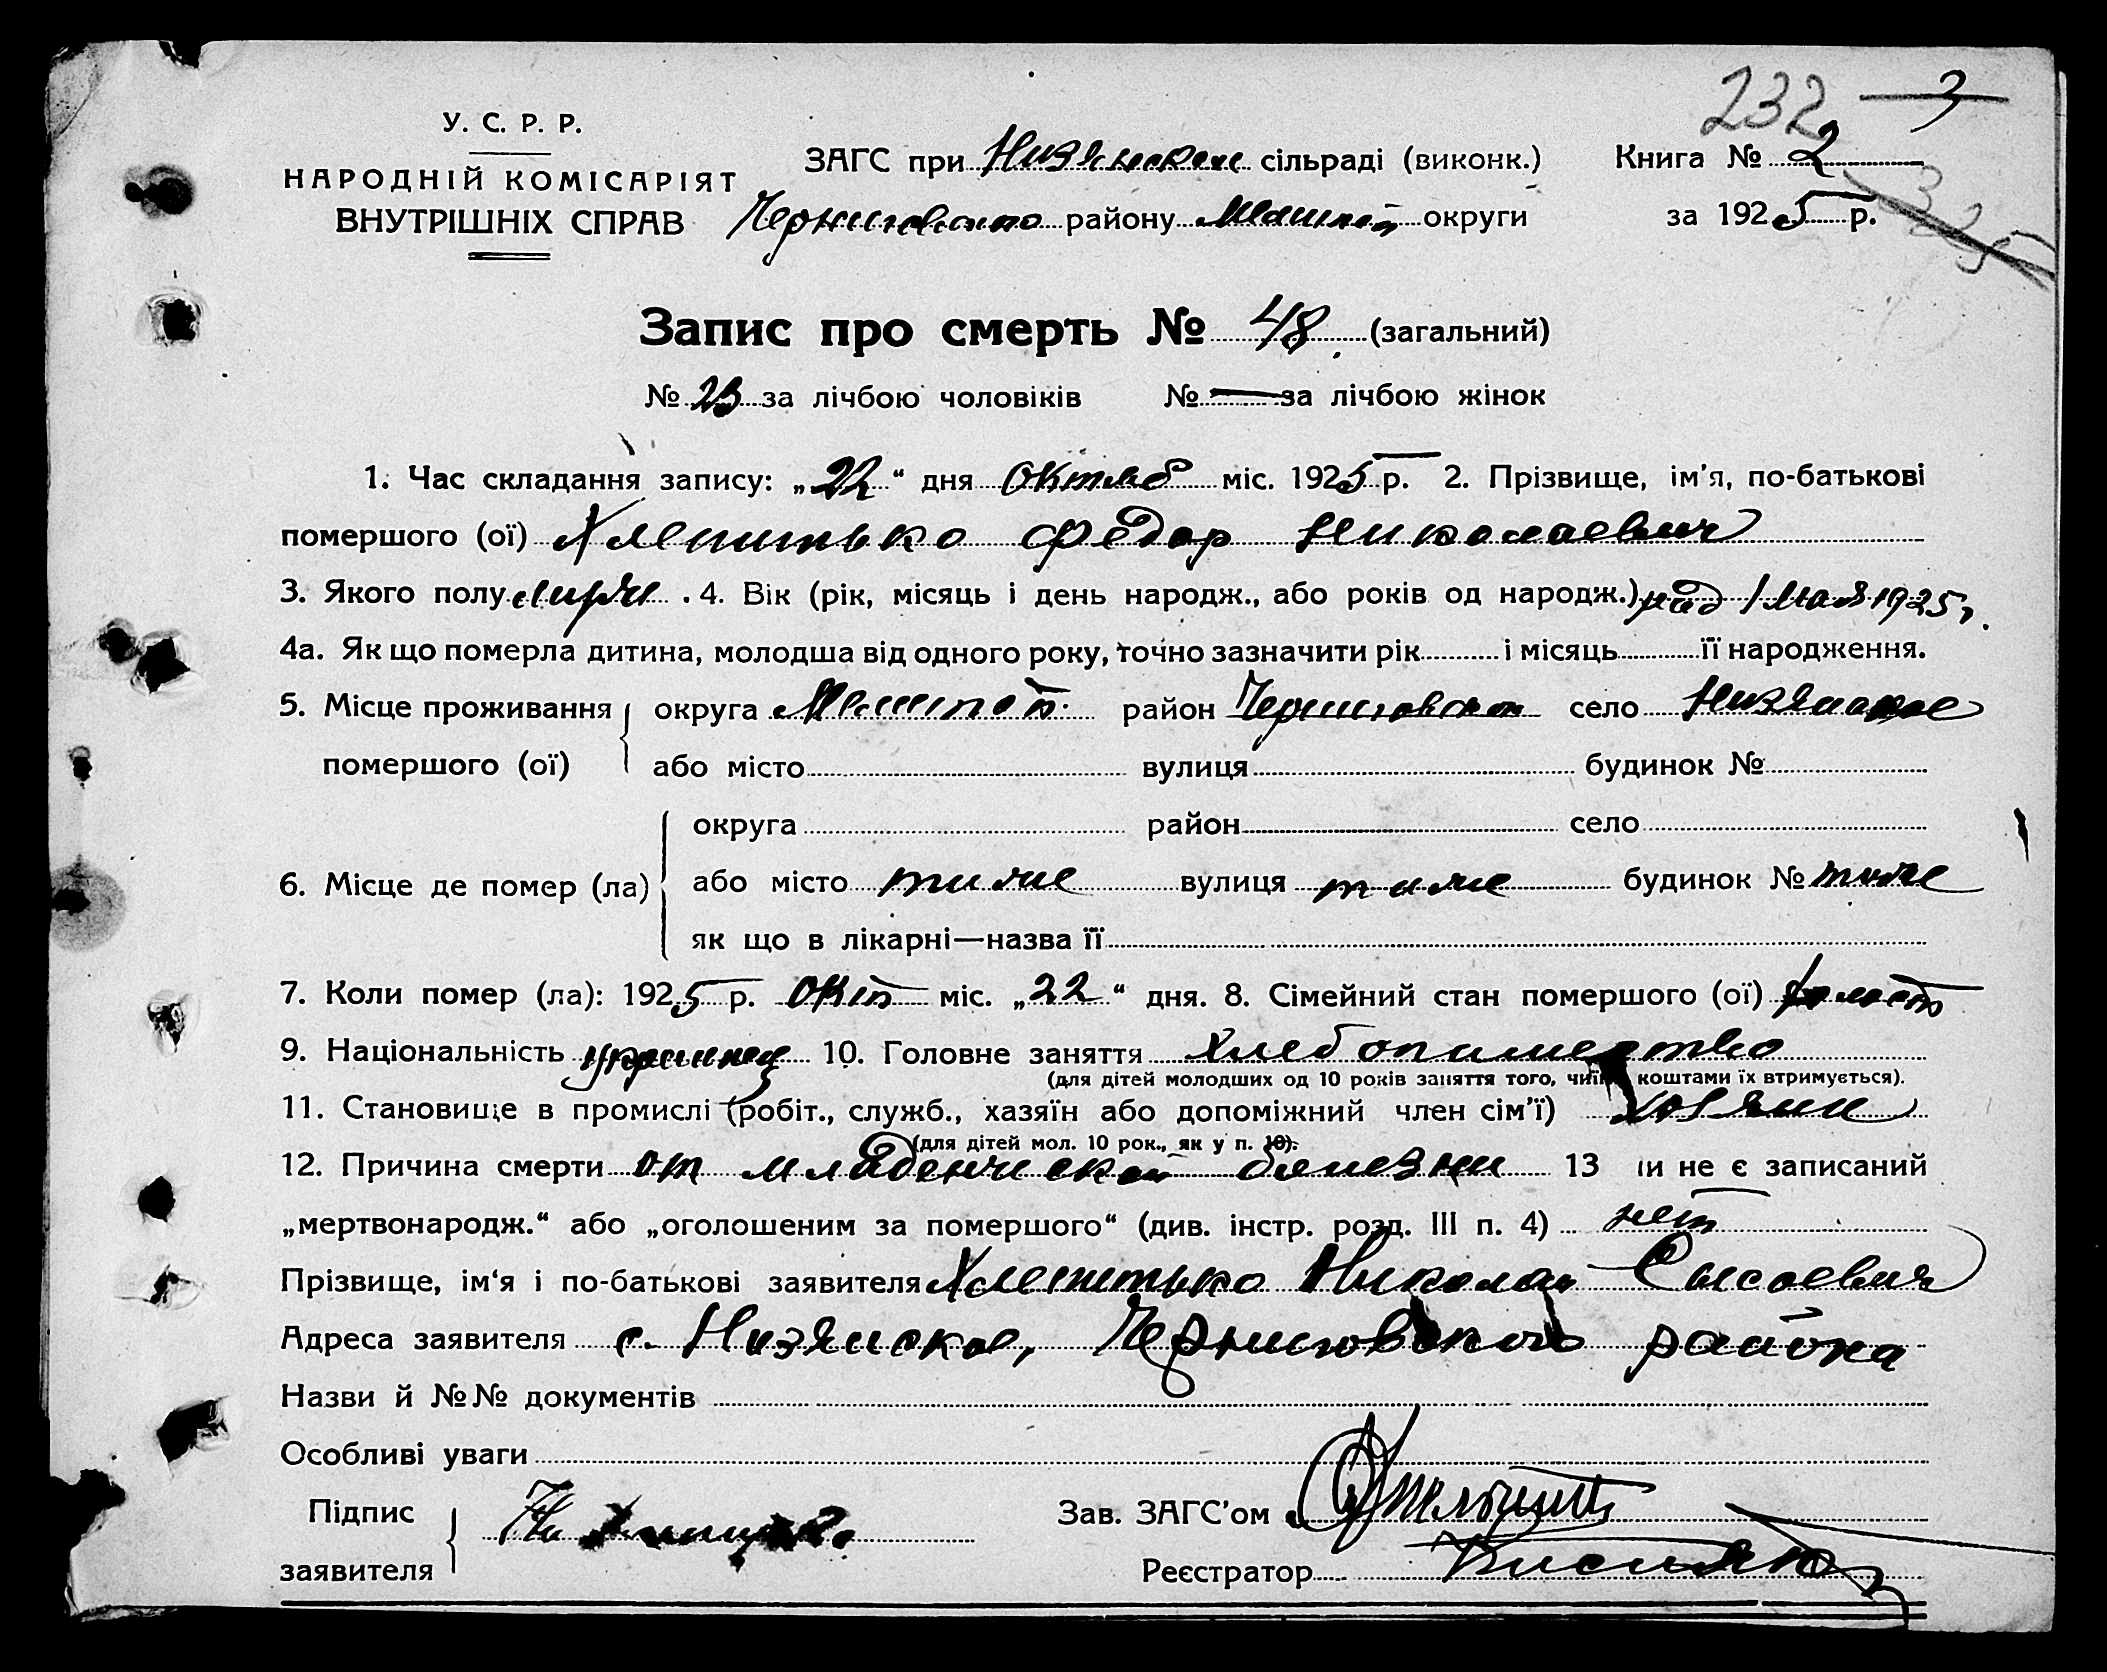 232 3
У. С. Р. Р.
НАРОДНІЙ КОМІСАРІЯТ
ВНУТРІШНІХ СПРАВ
ЗАГС при Низянском сільраді (виконк.) Книга № 2
Черниговского району Мелит округи за 1925 р.
325
Запис про смерть № 48 (загальний)
№ 23 за лічбою чоловіків № — за лічбою жінок
1. Час складання запису: „22“ дня октяб міс. 1925 р. 2. Прізвище, ім'я, по-батькові
помершого (ої) Хлепитько Федор Николаевич
3. Якого полу . 4. Вік (рік, місяць і день народж., або років од народж.) 1 мая 1925 г.
4а. Як що померла дитина, молодша від одного року, точно зазначити рік і місяць її народження.
5. Місце проживання округа Мелитоп. район Черниговском село Низянское
помершого (ої) або місто вулиця будинок №
округа район село
6. Місце де помер (ла) або місто тоже вулиця тоже будинок № тоже
як що в лікарні—назва її
7. Коли помер (ла): 1925 р. окт міс. „22“ дня. 8. Сімейний стан помершого (ої) холост
9. Національність украинец 10. Головне заняття хлебопашество
(для дітей молодших од 10 років заняття того, чиїми коштами їх втримується).
11. Становище в промислі (робіт., служб., хазяїн або допоміжний член сім'ї) хозяин
(для дітей мол. 10 рок., як у п. 10).
12. Причина смерти от младенческой болезни 13 и не є записаний
„мертвонародж.“ або „оголошеним за помершого“ (див. інстр. розд. III п. 4) нет
Прізвище, ім‘я і по-батькові заявителя Хлепитько Николай Сысоевич
Адреса заявителя с. Низянское, Черниговского района
Назви й №№ документів
Особливі уваги
Підпис Зав. ЗАГС'ом
заявителя Реєстратор